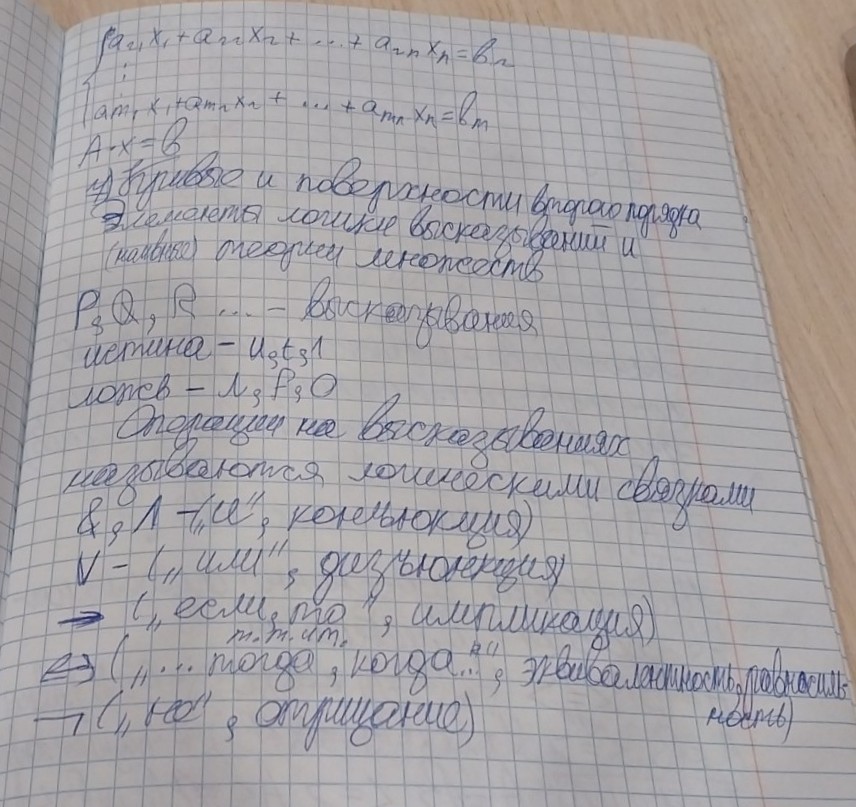 a₂₁x₁+a₂₂x₂+...+a₂ₙxₙ=b₂
⋮
aₘ₁x₁+aₘ₂x₂+...+aₘₙxₙ=bₘ
A·x=b
4) Кривые и поверхности второго порядка
Элементы логики высказываний и
(наивные) теории множеств
P, Q, R ... – высказывания
истина – и, t, 1
ложь – л, f, 0
Операции на высказываниях
называются логическими связками
&, ∧ – („и", конъюкция)
∨ – („или", дизъюнкция)
→ („если, то", импликация)
т.т.и т.
⇔ („... тогда, когда...", эквивалентность, равносиль
ность)
¬ („не", отрицание)